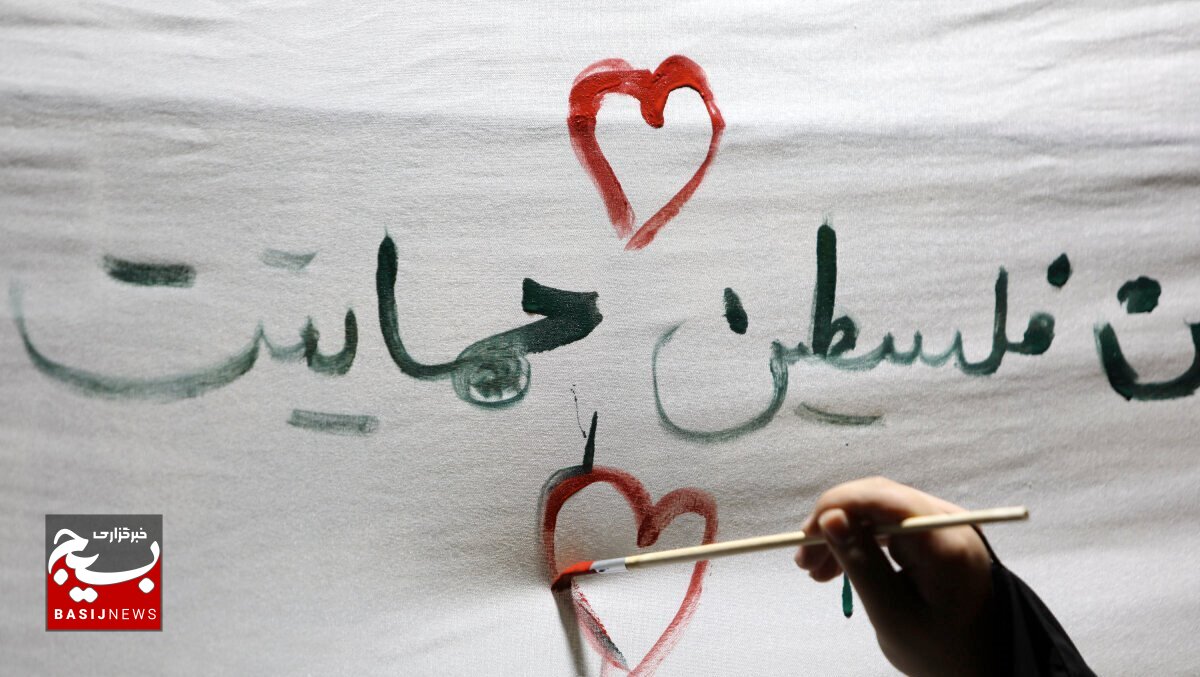 فلسطین حمایت
خبرگزاری
بسیج
BASIJNEWS